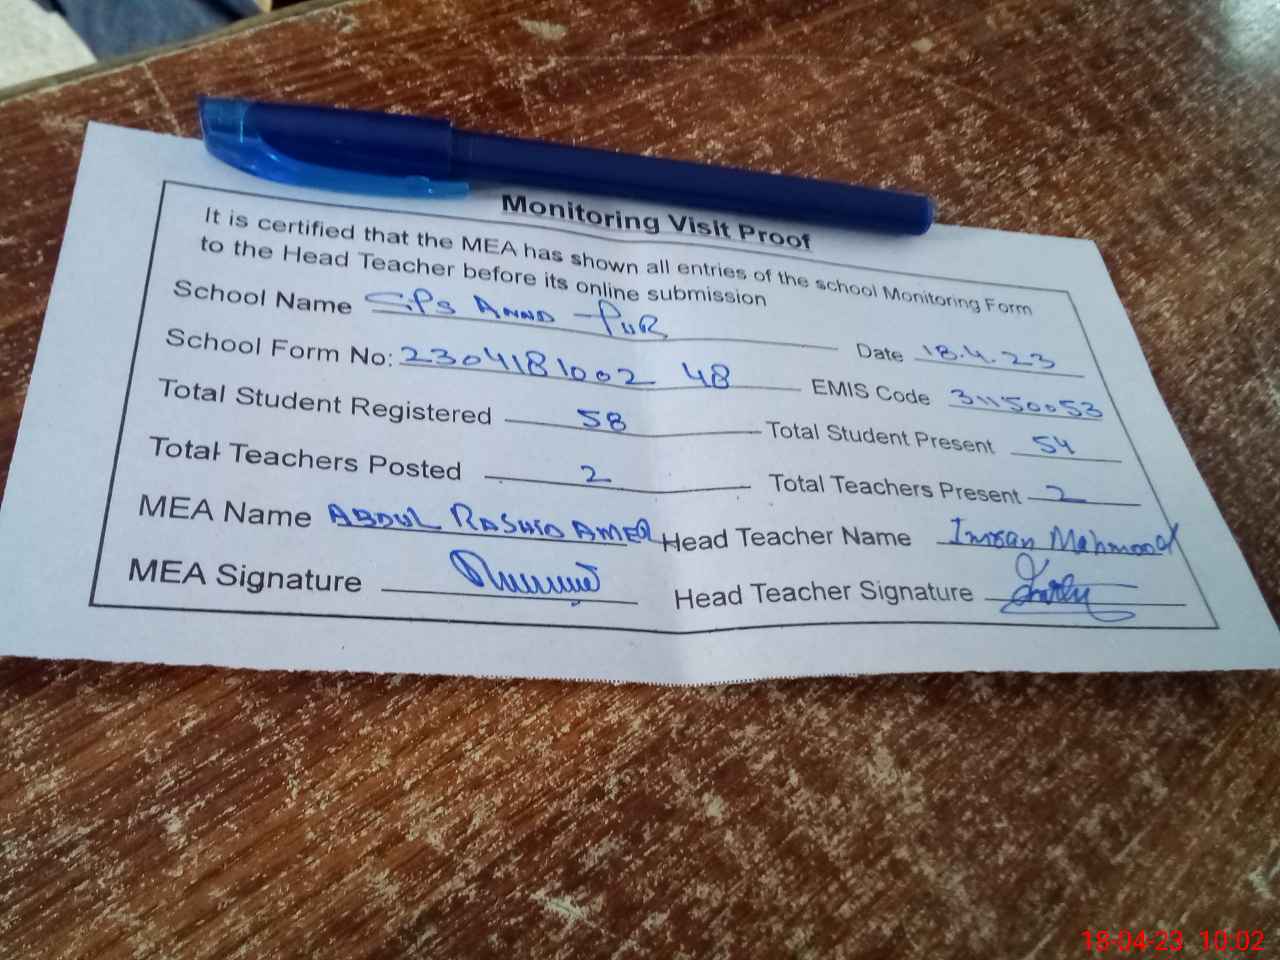 Monitoring Visit Proof
It is certified that the MEA has shown all entries of the school Monitoring Form
to the Head Teacher before its online submission
School Name GPS ANND PUR Date 18.4.23
School Form No: 2304181002 48 EMIS Code 31150053
Total Student Registered 58 Total Student Present 54
Total Teachers Posted 2 Total Teachers Present 2
MEA Name ABDUL RASHID AMER Head Teacher Name Imran Mahmood
MEA Signature Head Teacher Signature
18-04-23 10:02